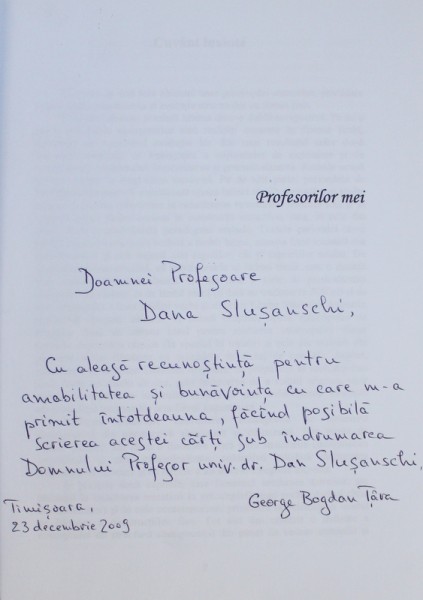 Profesorilor mei
Doamnei Profesoare
Dana Slușanschi,
Cu aleasă recunoștință pentru
amabilitatea și bunăvoința cu care m-a
primit întotdeauna, făcînd posibilă
scrierea acestei cărți sub îndrumarea
Domnului Profesor univ. dr. Dan Slușanschi,
George Bogdan Țâra
Timișoara,
23 decembrie 2009